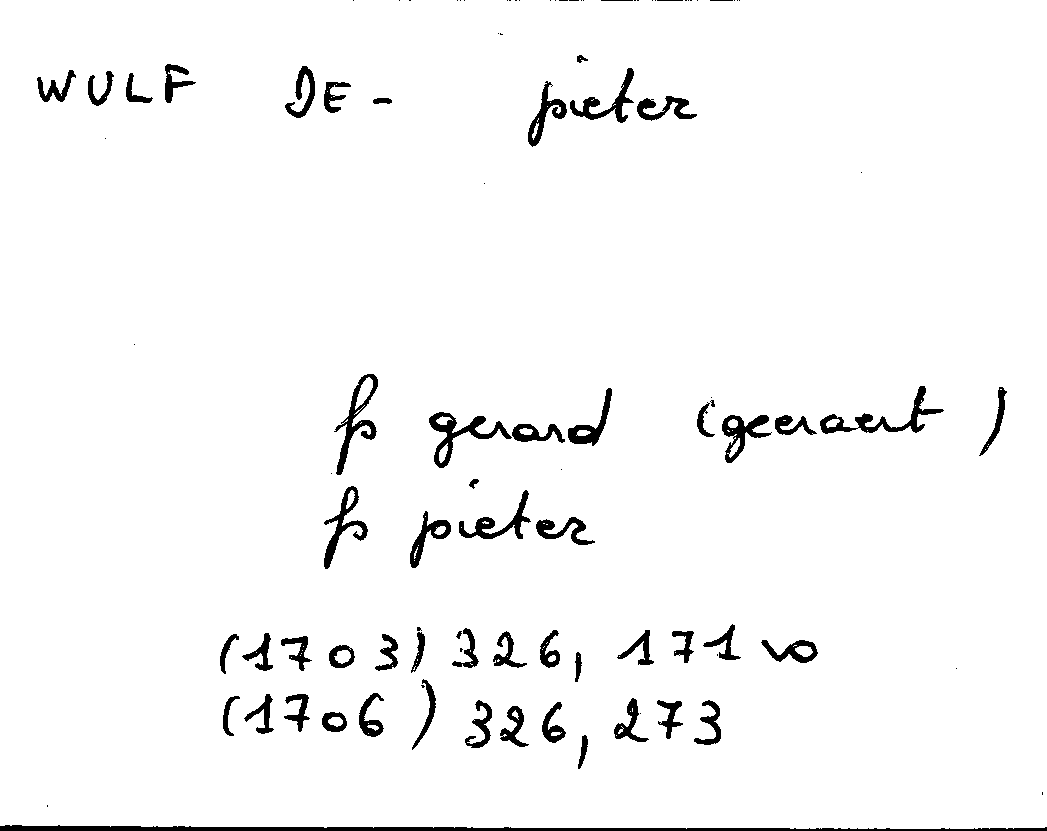 WULF DE- pieter
fs gerard (geeraert)
fs pieter
(1703) 326, 171 vo
(1706) 326, 273